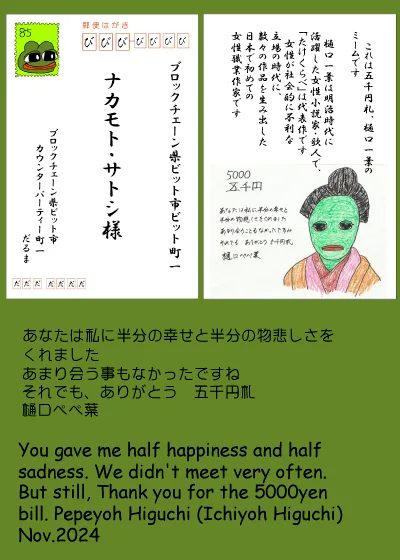 郵便はがき
85
びびびびびびび
ブロックチェーン県ビット市ビット町一
ナカモト・サトシ様
ブロックチェーン県ビット市
カウンターパーティー町一
だるま
ださださださだ
これは五千円札、樋口一葉の
ミームです
樋口一葉は明治時代に
活躍した女性小説家・歌人で、
「たけくらべ」は代表作です
女性が社会的に不利な
立場の時代に、
数々の作品を生み出した
日本で初めての
女性職業作家です
5000
五千円
あなたは私に半分の幸せと
半分の物悲しさをくれました
あまり会うこともなかったですね
それでも ありがとう 5千円札
樋口ぺぺ葉
あなたは私に半分の幸せと半分の物悲しさを
くれました
あまり会う事もなかったですね
それでも、ありがとう 五千円札
樋口ぺぺ葉
You gave me half happiness and half
sadness. We didn't meet very often.
But still, Thank you for the 5000yen
bill. Pepeyoh Higuchi (Ichiyoh Higuchi)
Nov.2024